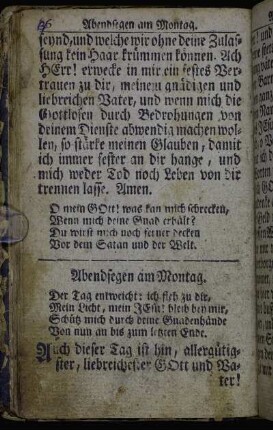 Abendsegen am Montag.
seynd, und welche wir ohne deine Zulas-
sung kein Haar krümmen können. Ach
HErr! erwecke in mir ein festes Ver-
trauen zu dir, meinem gnädigen und
liebreichen Vater, und wenn mich die
Gottlosen durch Bedrohungen von
deinem Dienste abwendig machen wol-
len, so stärke meinen Glauben, damit
ich immer fester an dir hange, und
mich weder Tod noch Leben von dir
trennen lasse. Amen.
O mein GOtt! was kan mich schrecken,
Wenn mich deine Gnad erhält?
Du wirst mich noch ferner decken
Vor dem Satan und der Welt.
Abendsegen am Montag.
Der Tag entweicht: ich flieh zu dir,
Mein Licht, mein JEsu! bleib bey mir,
Schütz mich durch deine Gnadenhände
Von nun an bis zum letzten Ende.
Auch dieser Tag ist hin, allergütig-
ster, liebreichester GOtt und Va-
ter!